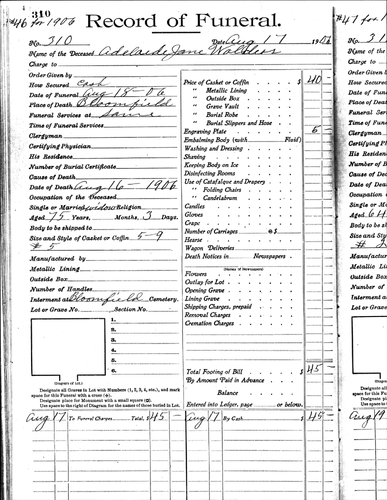 310
#46 for 1906
Record of Funeral.
No. 310 Date Aug 17 1906
Name of the Deceased Adelaide Jane
Charge to
Order Given by
How Secured Cash
Date of Funeral Aug 18-06
Place of Death Bloomfield
Funeral Services at Same
Time of Funeral Services
Clergyman
Certifying Physician
His Residence
Number of Burial Certificate
Cause of Death
Date of Death Aug 16-1906
Occupation of the Deceased
Single or Married Widow Religion
Aged 75 Years, Months, 3 Days.
Body to be shipped to
Size and Style of Casket or Coffin 5-9
# 5
Manufactured by
Metallic Lining
Outside Box
Number of Handles
Interment at Bloomfield Cemetery.
Lot or Grave No. Section No.
1.
2.
3.
4.
5.
6.
(Diagram of Lot.)
Designate all Graves in Lot with Numbers (1, 2, 3, 4, etc.), and mark
space for this Funeral with a cross (+).
Designate place for Monument with a small square (□).
Use space to the right of Diagram for the names of those buried in Lot.
Price of Casket or Coffin $ 40 -
" Metallic Lining
" Outside Box
" Grave Vault
" Burial Robe
" Burial Slippers and Hose
Engraving Plate 5 -
Embalming Body (with Fluid)
Washing and Dressing
Shaving
Keeping Body on Ice
Disinfecting Rooms
Use of Catafalque and Drapery
" Folding Chairs
" Candelabrum
Candles
Gloves
Crape
Number of Carriages @ $
Hearse
Wagon Deliveries
Death Notices in Newspapers
(Names of Newspapers)
Flowers
Outlay for Lot
Opening Grave
Lining Grave
Shipping Charges, prepaid
Removal Charges
Cremation Charges
Total Footing of Bill $ 45 -
By Amount Paid in Advance
Balance
Entered into Ledger, page or below.
Aug 17 To Funeral Charges Total, $ 45 - Aug 17 By Cash $ 45 -
#47 for 1
No. 31
Name of the
Charge to
Order Given
How Secured
Date of Fun
Place of Dea
Funeral Ser
Time of Fun
Clergyman
Certifying P
His Resid
Number of B
Cause of De
Date of Dea
Occupation
Single or Ma
Aged 64
Body to be s
Size and Sty
Manufacture
Metallic Lin
Outside Box
Number of H
Interment at
Lot or Grave
Designate
space for
Designate
Use space
Aug 19